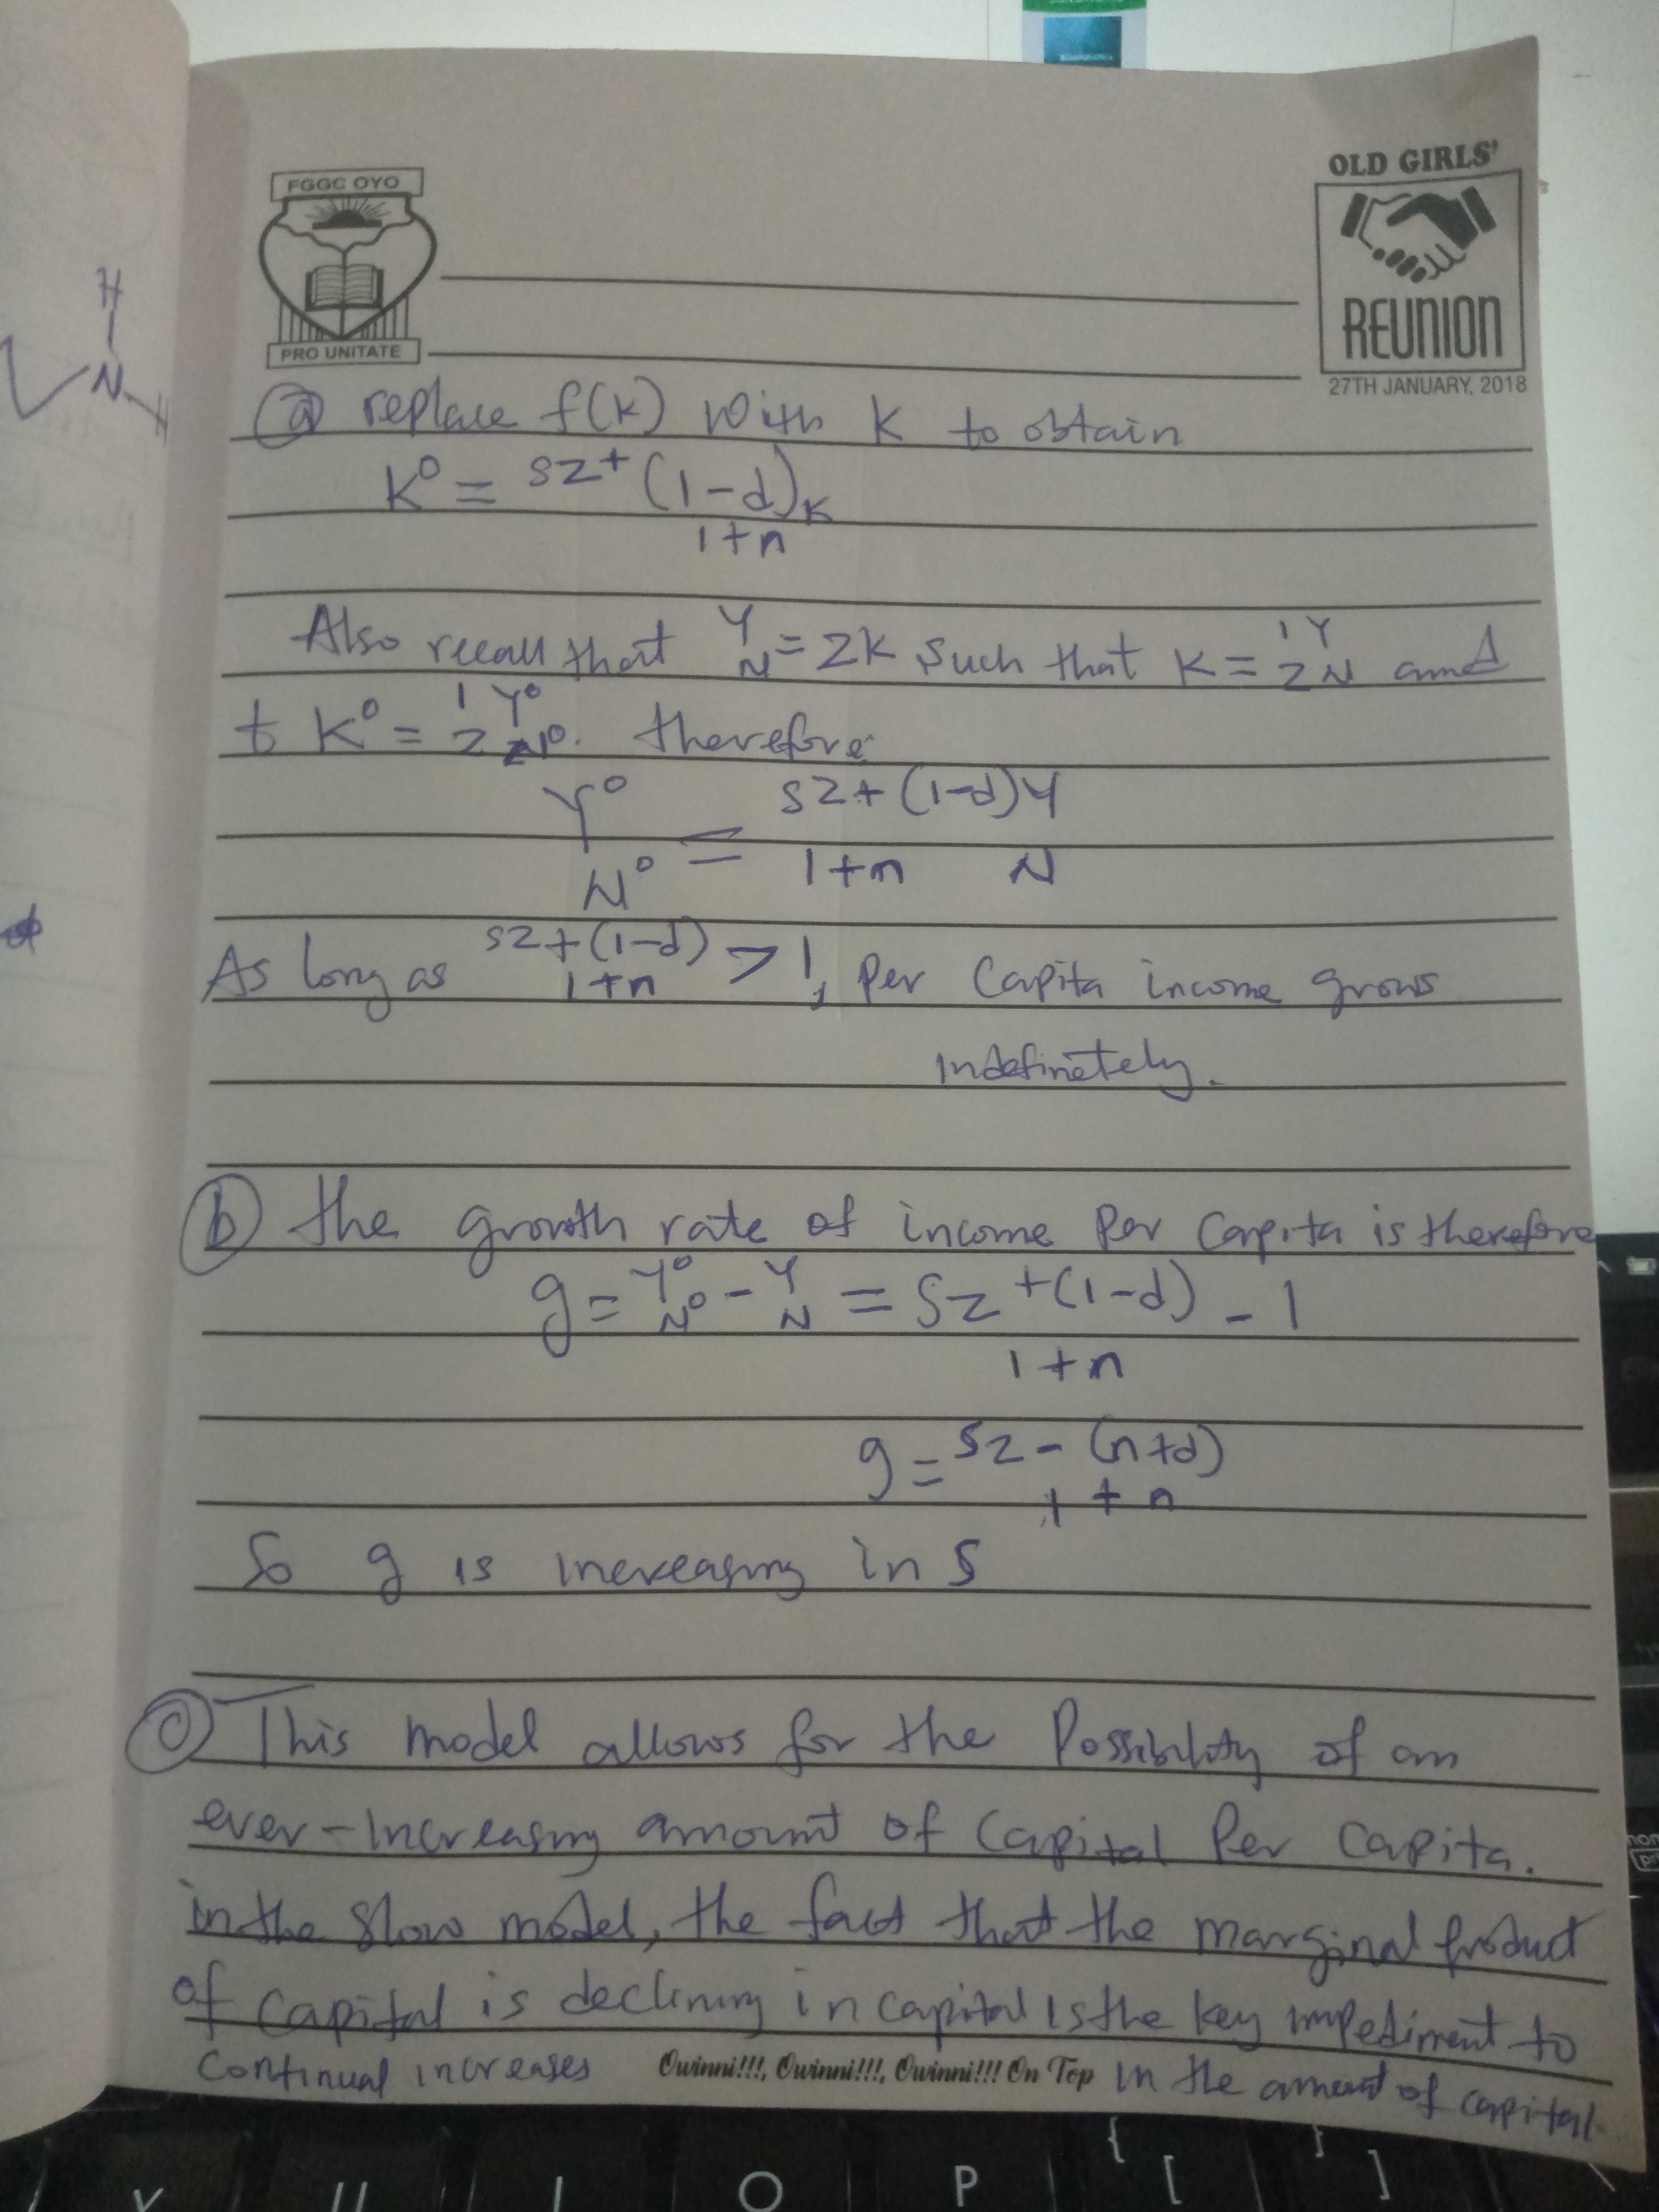 FGGC OYO
PRO UNITATE
OLD GIRLS'
REUNION
27TH JANUARY, 2018
H
N
H
(a) replace f(k) with K to obtain
K⁰ = sz+ (1-d)K
1+n
Also recall that Y/N = zk such that K = 1/z Y/N and
t K⁰ = 1/z Y⁰/N⁰. therefore
Y⁰ sz+ (1-d) Y
N⁰ = 1+n N
As long as sz+(1-d)/1+n > 1, per capita income grows
indefinetely.
(b) the growth rate of income per capita is therefore
g = Y⁰/N⁰ - Y/N = sz +(1-d) - 1
1+n
g = sz - (n+d)
1+n
So g is increasing in s
(c) This model allows for the possibility of an
ever-increasing amount of capital per capita.
in the Slow model, the fact that the marginal product
of capital is declining in capital is the key impediment to
continual increases in the amount of capital.
Owinni!!!, Owinni!!!, Owinni!!! On Top
U
I
O
P
{
[
}
]